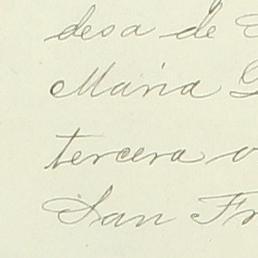 desa de
María
tercera
San Fr